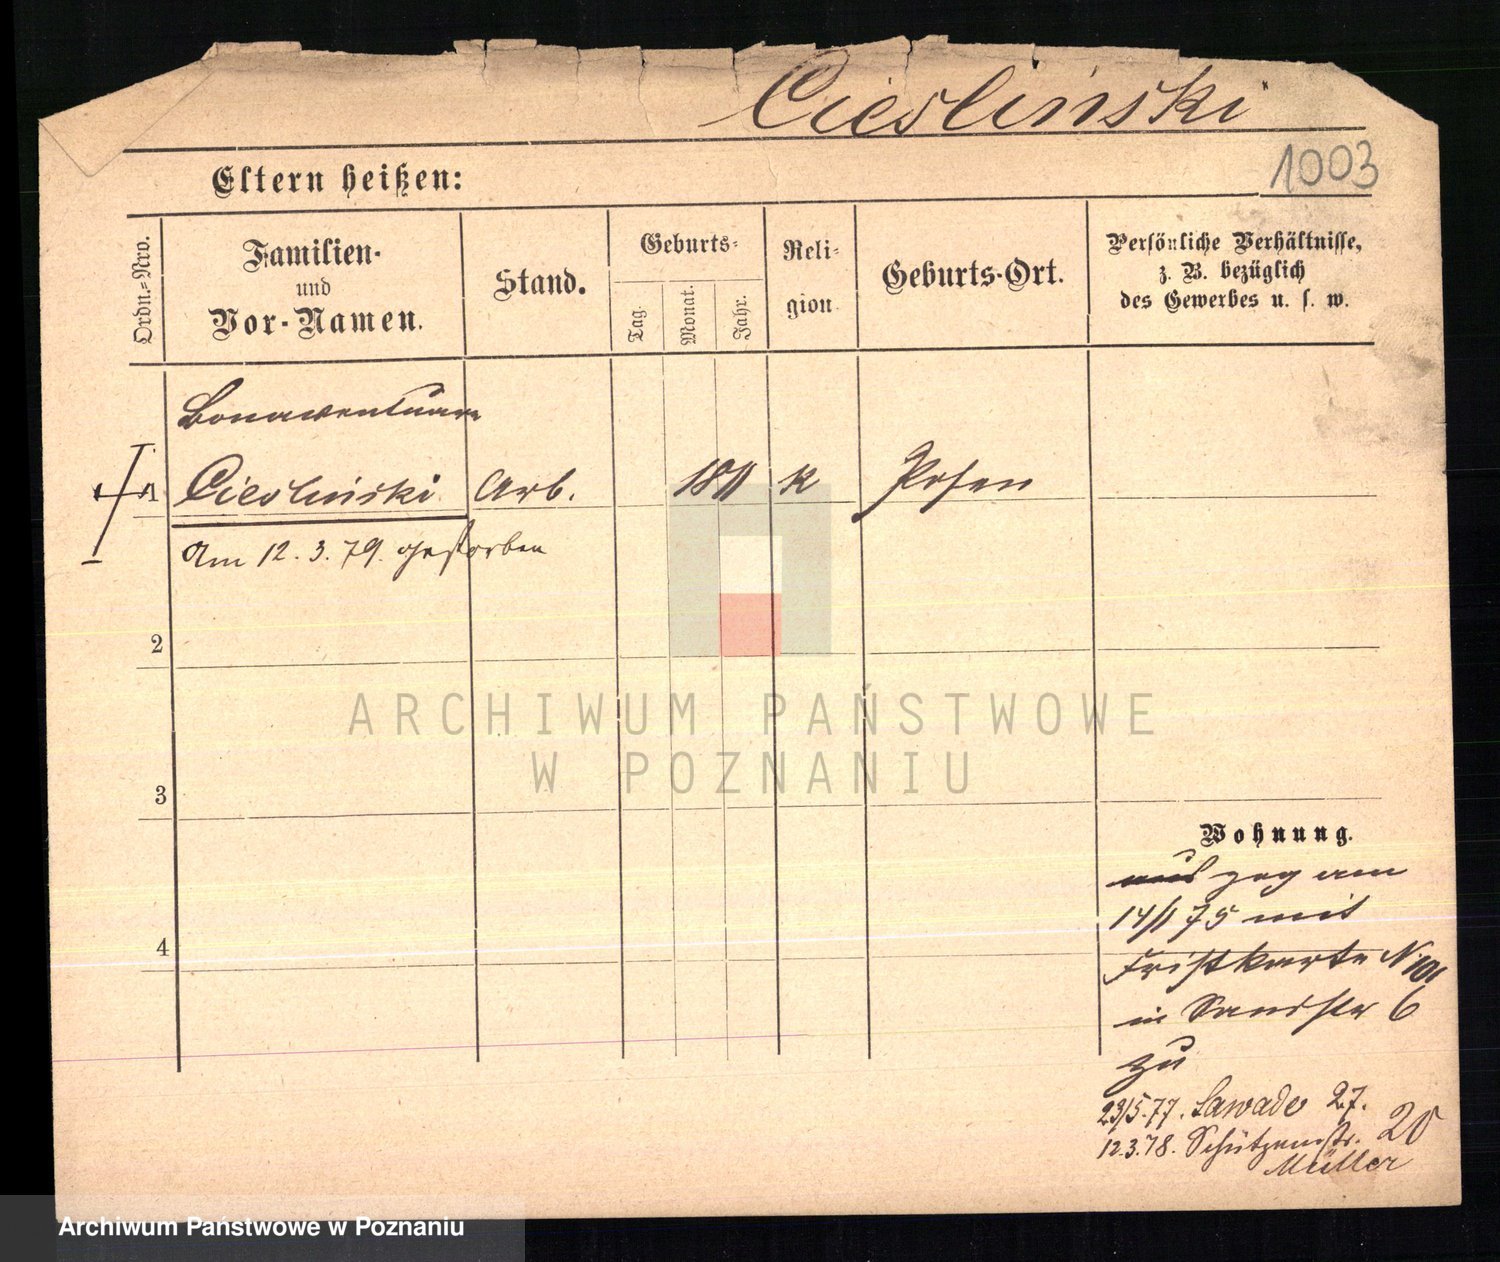 Cieśliński
1003
Eltern heißen:
Ordn.-Nro.
Familien-
und
Vor-Namen.
Stand.
Geburts-
Tag.
Monat.
Jahr.
Reli-
gion
Geburts-Ort.
Persönliche Verhältnisse,
z. B. bezüglich
des Gewerbes u. s. w.
Bonawentura
1 Cieśliński Arb. 1811 K Posen
Am 12. 3. 79. gestorben
2
3
4
Wohnung.
zog am
14/1 75 mit
Fristkarte N 101
in Sandstr 6
zu
23/5.77. Zawade 27.
12.3.78. Schützenstr. 20
Müller
ARCHIWUM PAŃSTWOWE
W POZNANIU
Archiwum Państwowe w Poznaniu